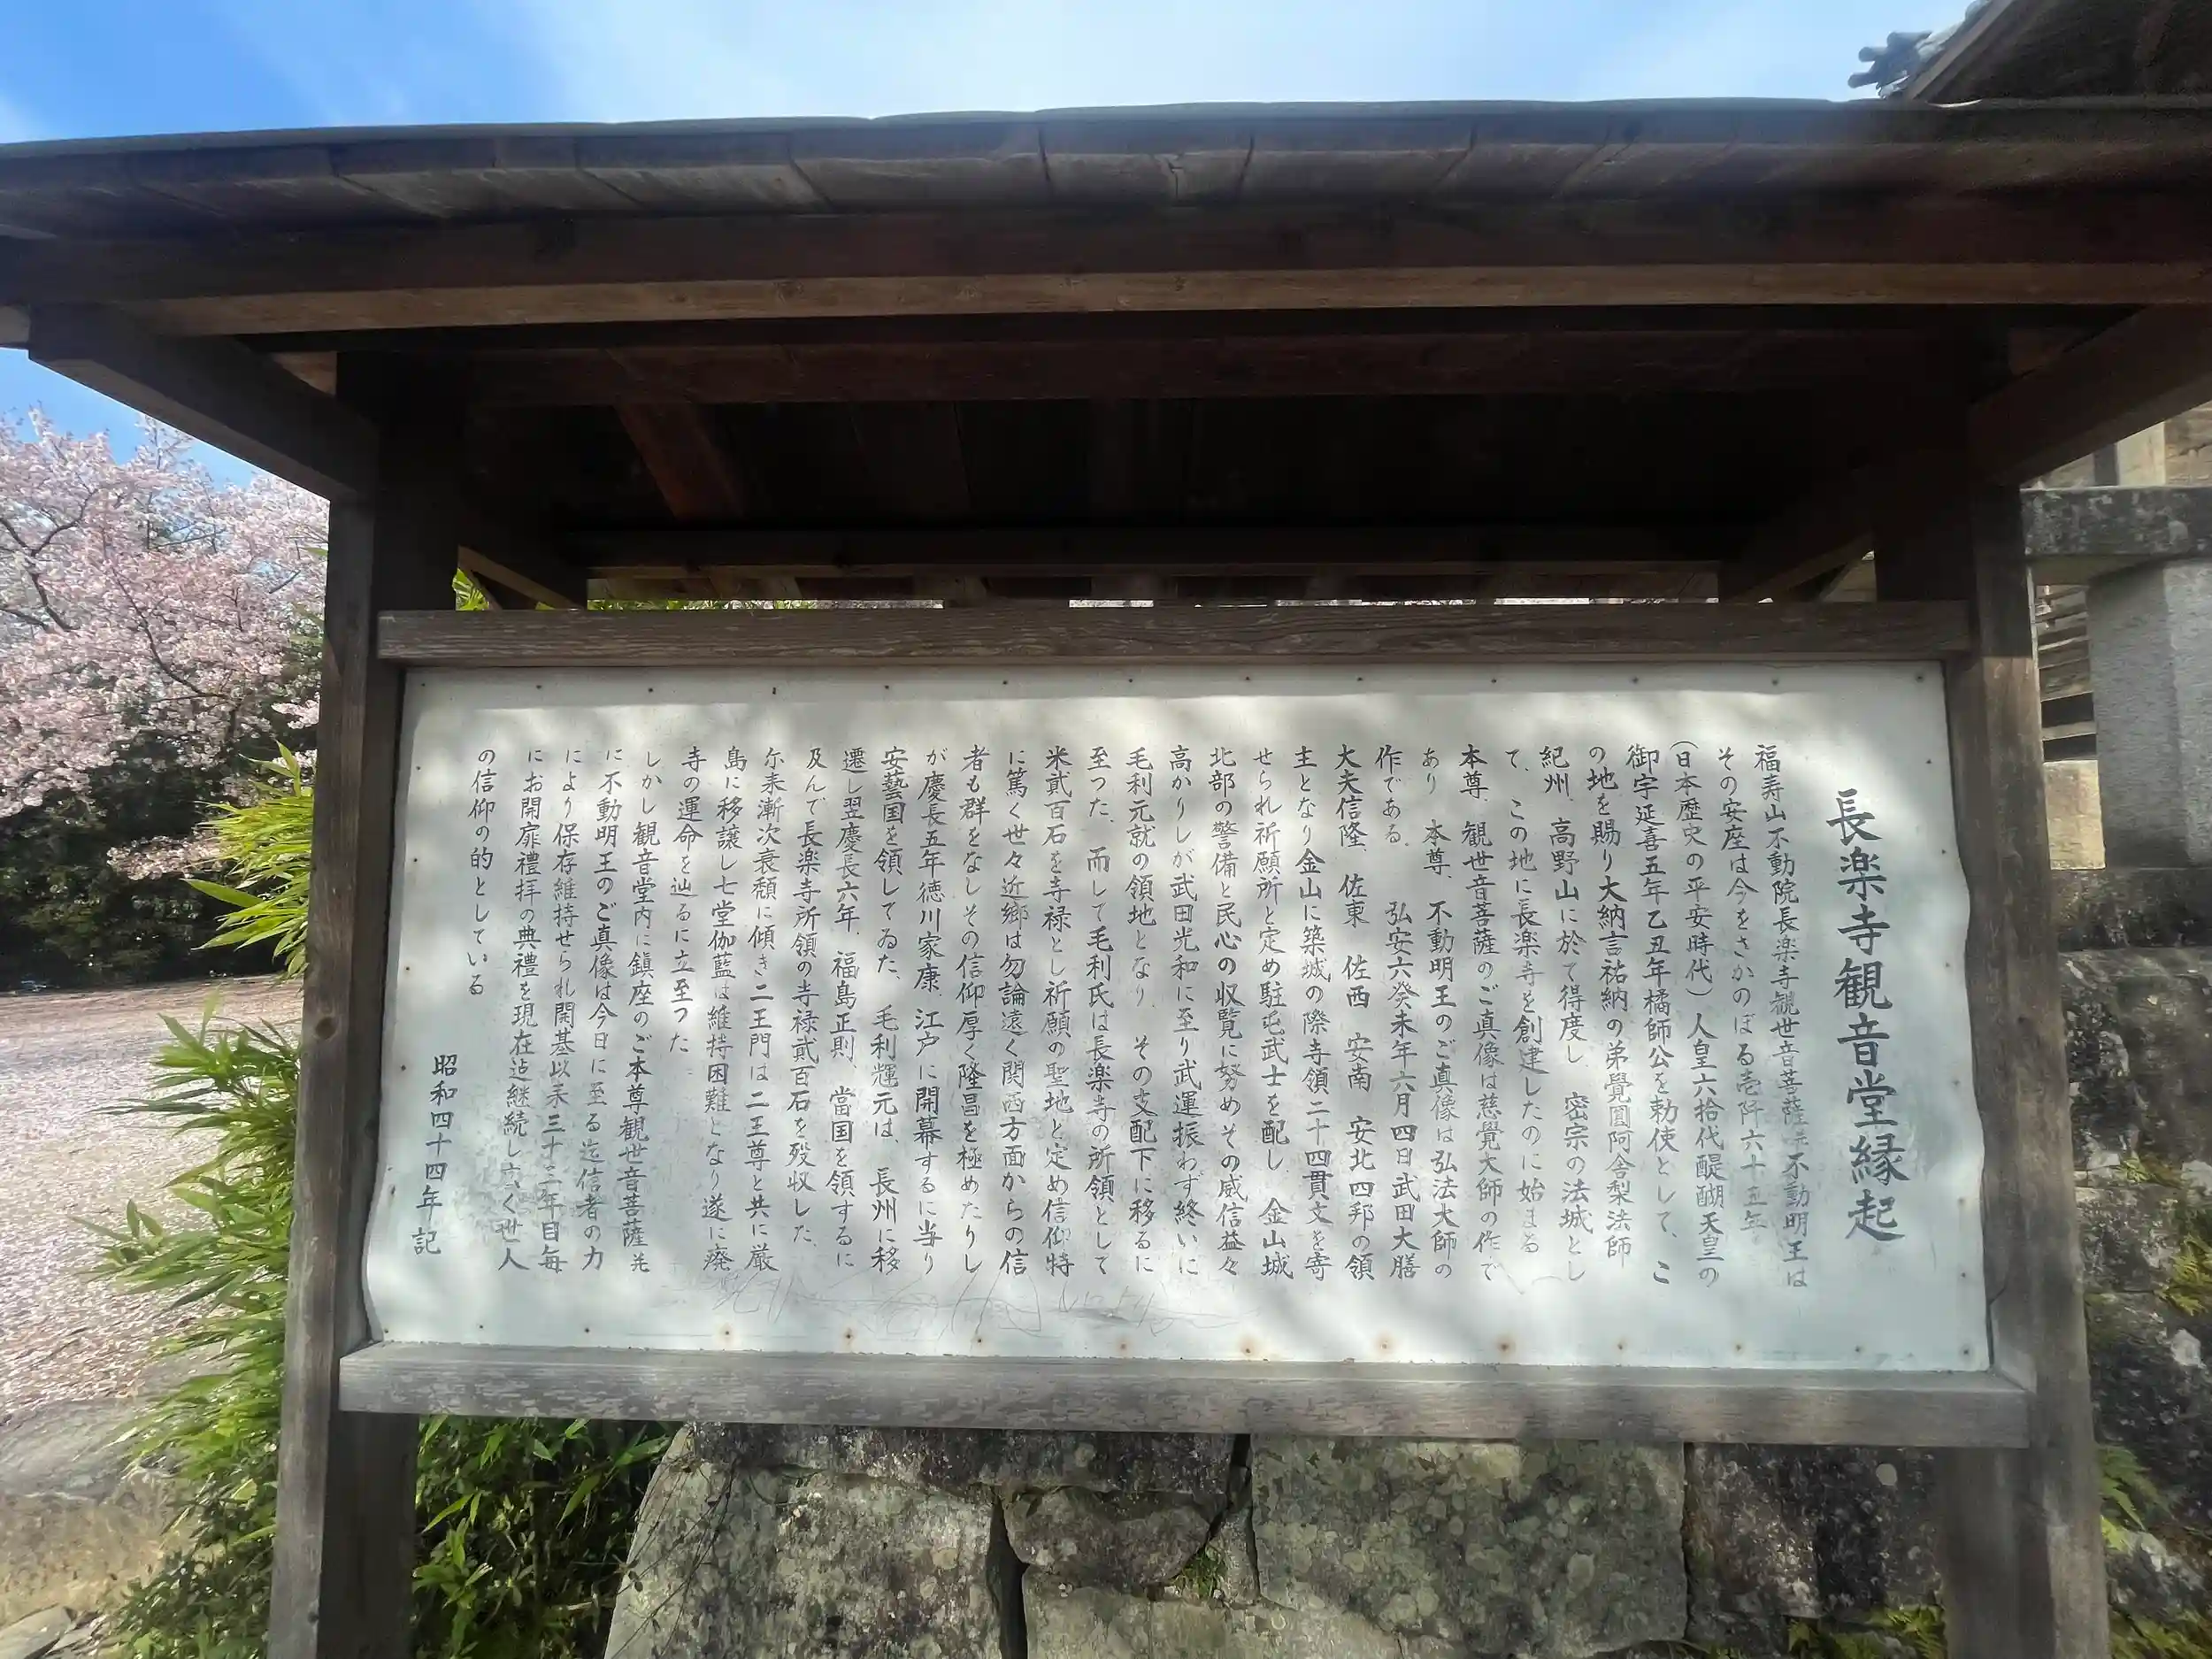 長楽寺観音堂縁起
福寿山不動院長楽寺観世音菩薩 不動明王は
その安座は今をさかのぼる壱阡六十五年
(日本歴史の平安時代)人皇六拾代醍醐天皇の
御宇延喜五年乙丑年橘師公を勅使として、こ
の地を賜り大納言祐納の弟覺圓阿舎梨法師
紀州、高野山に於て得度し 密宗の法城とし
て、この地に長楽寺を創建したのに始まる
本尊、観世音菩薩のご真像は慈覺大師の作で
あり 本尊、不動明王のご真像は弘法大師の
作である、 弘安六癸未年六月四日武田大膳
大夫信隆、佐東 佐西 安南 安北四邦の領
主となり金山に築城の際寺領二十四貫文を寄
せられ祈願所と定め駐屯武士を配し 金山城
北部の警備と民心の収覧に努めその威信益々
高かりしが武田光和に至り武運振わず終いに
毛利元就の領地となり、その支配下に移るに
至った、而して毛利氏は長楽寺の所領として
米貳百石を寺禄とし祈願の聖地と定め信仰特
に篤く世々近郷は勿論遠く関西方面からの信
者も群をなしその信仰厚く隆昌を極めたりし
が慶長五年徳川家康、江戸に開幕するに当り
安藝国を領してゐた、毛利輝元は、長州に移
遷し翌慶長六年、福島正則、當国を領するに
及んで長楽寺所領の寺禄貳百石を歿収した、
尓来漸次衰頽に傾き二王門は二王尊と共に厳
島に移譲し七堂伽藍は維持困難となり遂に廃
寺の運命を辿るに立至った
しかし観音堂内に鎮座のご本尊観世音菩薩並
に不動明王のご真像は今日に至る迄信者の力
により保存維持せられ開基以来三十三年目毎
にお開扉禮拝の典禮を現在迠継続し広く世人
の信仰の的としている
昭和四十四年 記